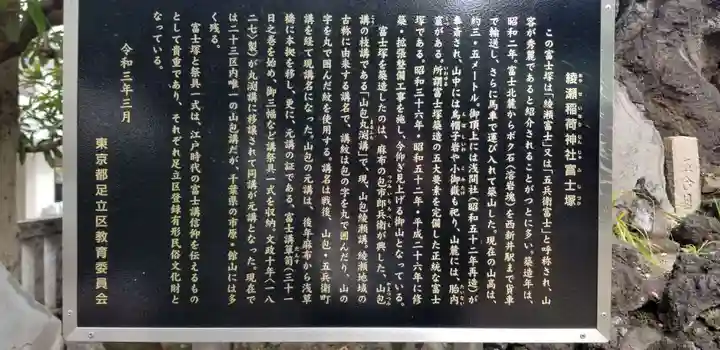 綾瀬稲荷神社富士塚
あやせいなりじんじゃふじづか
この富士塚は「綾瀬富士」又は「五兵衛富士」と呼称され、山
容が秀麗であると紹介されることがつとに多い。築造年は、
昭和二年。富士北麓からボク石(溶岩塊)を西新井駅まで貨車
で輸送し、さらに馬車で運び入れて築山した。現在の山高は、
約三・五メートル。御頂上には浅間社(昭和五十二年再造)が
奉斎され、山中には烏帽子岩や小御嶽も祀り、山麓には、胎内
窟がある。所謂富士塚築造の五大要素を完備した正統な富士
塚である。昭和三十六年・昭和五十二年・平成二十六年に修
築・拡張整備工事を施し、今仰ぎ見上げる御山となっている。
富士塚を築造したのは、麻布の包市郎兵衛が興した、山包
講の枝講である「山包丸渕講」で、現、山包綾瀬講。綾瀬地域の
古称に由来する講名で、講紋は包の字を丸で囲んだり、山の
字を丸で囲んだ紋を使用する。講名は戦後、山包・五兵衛町
講を経て現講名になった。山包の元講は、後年麻布から浅草
橋に本拠を移し、更に、元講の証である、富士講箪笥(三十一
日之巻を始め、御三幅など講祭具一式を収納。文政十年〈一八
二七〉製)が丸渕講に移譲されて同講が元講となった。現在で
は二十三区内唯一の山包講だが、千葉県の市原・館山には多
く残る。
富士塚と祭具一式は、江戸時代の富士講信仰を伝えるもの
として貴重であり、それぞれ足立区登録有形民俗文化財と
なっている。
令和三年三月
東京都足立区教育委員会